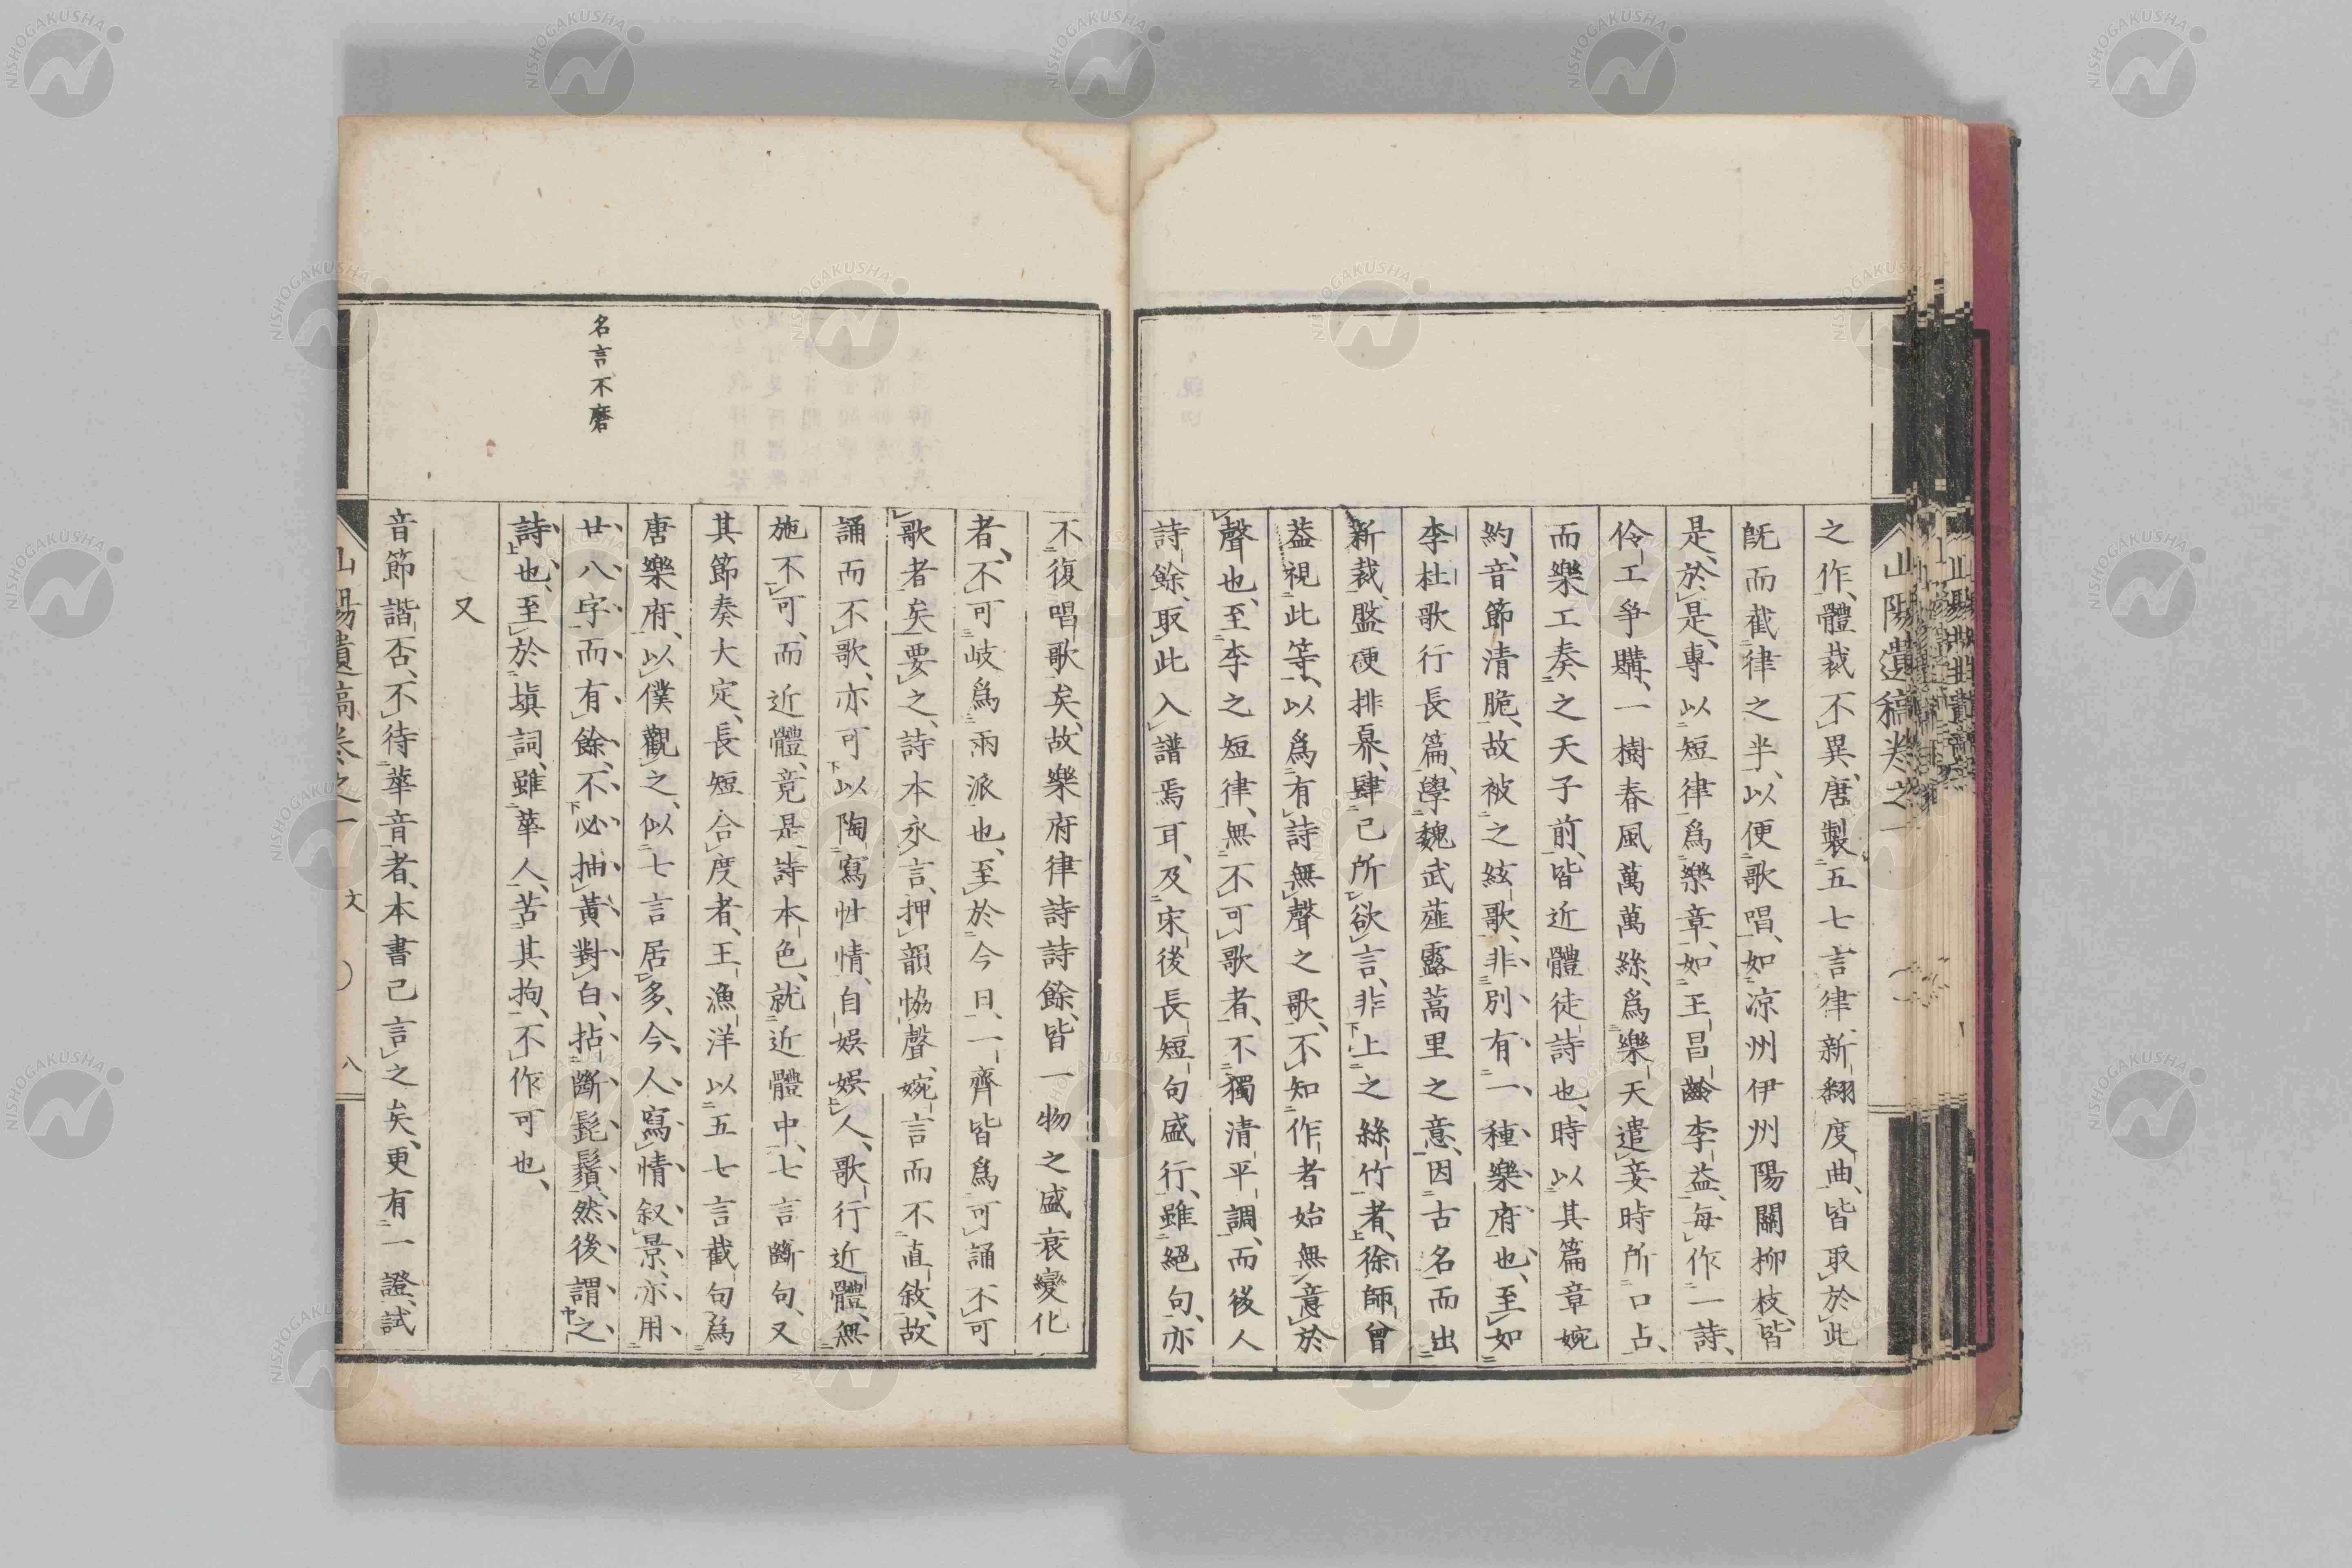 山陽遺稿卷之一
之作、體裁不異、唐製五七言律、新翻度曲、皆取於此
既而截律之半、以便歌唱、如涼州伊州陽關柳枝、皆
是、於是、專以短律為樂章、如王昌齡李益、每作一詩、
伶工爭購、一樹春風萬萬絲、為樂天遣妾時所口占、
而樂工奏之天子前、皆近體徒詩也、時以其篇章婉
約、音節清脆、故被之絃歌、非別有一種樂府也、至如
李杜歌行長篇、學魏武薤露蒿里之意、因古名而出
新裁、盤硬排奡、肆己所欲言、非上之絲竹者、徐師曾
葢視此等、以為有詩無聲之歌、不知作者始無意於
聲也、至李之短律、無不可歌者、不獨清平調、而後人
詩餘、取此入譜焉耳、及宋後長短句盛行、雖絕句、亦
不復唱歌矣、故樂府律詩詩餘、皆一物之盛衰變化
者、不可岐為兩派也、至於今日、一齊皆為可誦不可
歌者矣、要之、詩本永言、押韻恊聲、婉言而不直敘、故
誦而不歌、亦可以陶寫性情、自娛娛人、歌行近體、無
施不可、而近體、竟是詩本色、就近體中、七言斷句、又
其節奏大定、長短合度者、王漁洋以五七言截句為
唐樂府、以僕觀之、似七言居多、今人寫情叙景、亦用
廿八字而有餘、不必抽黃對白、拈斷髭鬚、然後謂之
詩也、至於填詞、雖華人、苦其拘、不作可也、
又
音節諧否、不待華音者、本書己言之矣、更有一證、試
名言不磨
山陽遺稿卷之一
文
八
NISHOGAKUSHA